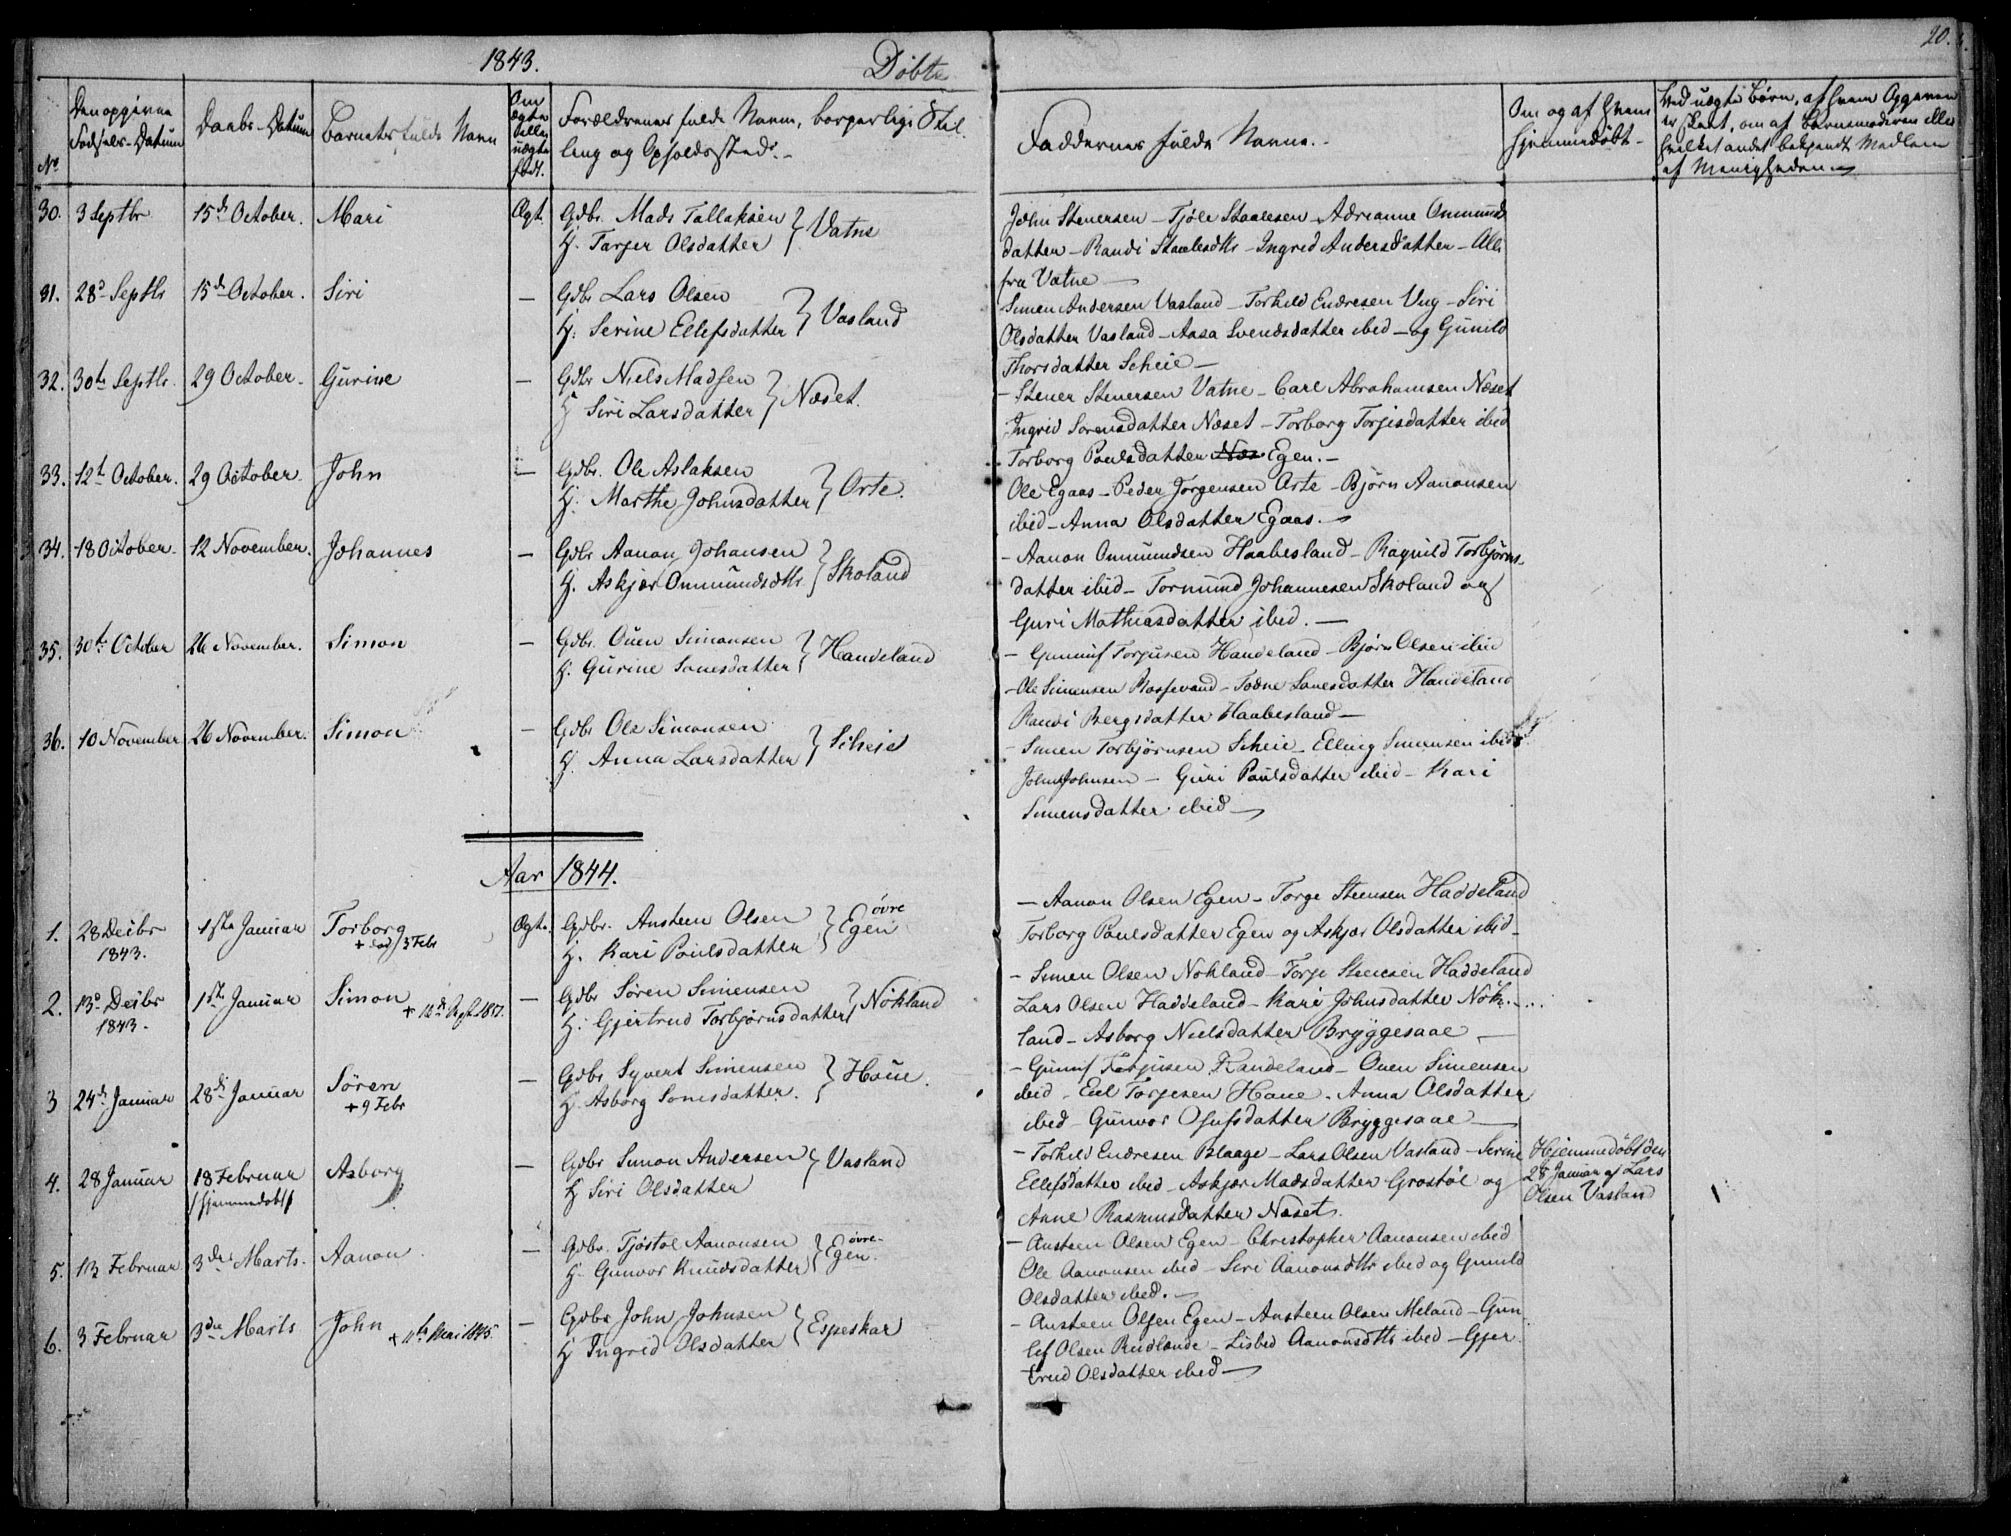 1843.
Döbte
20.
No
Den opgivne Fødsels-Datum
Daabs-Datum
Barnets fulde Navn
Om ægte eller uægte født.
Forældrenes fulde Navn, borgerlige Stil-
ling og Opholdssted.-
Faddernes fulde Navne.-
Om og af hvem hjemmedöbt-
Ved uægte Børn, af hvem Opgaven
er skeet, om af Barnemoderen eller
hvilket andet bekjendt Medlem
af Menigheden
30. 3 Septbr 15de October. Mari Ægt. Gdbr. Mads Tallaksen
H. Tarjer Olsdatter } Vatne
John Stenersen - Tjöle Staalesen - Adrianne Onmunds
datter - Randi Staalesdtr - Ingrid Andersdatter - Alle
fra Vatne -
31. 28de Septbr 15de October. Siri - Gdbr Lars Olsen
H. Serine Ellefsdatter } Vasland
Simen Andersen Vasland - Torkild Endresen Ung - Siri
Olsdatter Vasland - Aasa Svendsdatter ibid - og Gunild
Thorsdatter Scheie -
32. 30te Septbr. 29 October. Gurine - Gdbr Niels Madsen
H Siri Larsdatter } Næset.
- Stener Stenersen Vatne - Carl Abrahamsen Næset
Ingrid Sorensdatter Næset - Torborg Torjisdatter ibid
Torborg Poulsdatter Næs Egen. -
33. 12te October. 29 October. John - Gdbr. Ole Aslaksen
H. Marthe Johnsdatter } Orte.
Ole Egaas - Peder Jørgensen Orte - Björn Aanonsen
ibid - Anna Olsdatter Egaas. -
34. 18 October. 12 November. Johannes - Gdbr Aanon Johansen
H. Askjær Onmundsdtr. } Skoland
- Aanon Onmundsen Haabesland - Ragnild Torbjörns-
datter ibid - Tormund Johannesen Skoland og
Guri Mathiasdatter ibid. -
35. 30te October 26 November. Simon - Gdbr. Ouen Simonsen
H. Gurine Sonesdatter } Handeland
- Gunnuf Torjusen Handeland - Bjørn Olsen ibid
- Ole Simensen Rossevand - Todne Sonesdatter Handeland
Randi Bergsdatter Haabesland -
36. 10 November 26 November. Simon - Gdbr Ole Simonsen
H. Anna Larsdatter } Scheie
- Simen Torbjörnsen Scheie - Elling Simensen ibid
John Johnsen - Guri Poulsdatter ibid - Kari
Simensdatter ibid -
Aar 1844.
1. 28 Decbr 1843. 1ste Januar Torborg + død 3 Febr Ægte. Gdbr. Austeen Olsen
H. Kari Poulsdatter } Egen øvre
- Aanon Olsen Egen - Torge Steensen Haddeland
Torborg Poulsdatter Egen og Askjær Olsdatter ibid -
2. 13de Decbr 1843. 1ste Januar Simon - Gdbr Sören Simensen
H. Gjertrud Torbjörnsdatter } Nökland
- Simen Olsen Nökland - Torje Steensen Haddeland
Lars Olsen Haddeland - Kari Johnsdatter Nök-
land - Asborg Nielsdatter Bryggesaae -
3 24de Januar 28de Januar Sören + 9 Febr - Gdbr Syvert Simensen
H. Asborg Sonesdatter. } Houe.
- Gunuf Torjusen Handeland - Ouen Simensen
ibid - Torjesen Houe. Anna Olsdatter
ibid - Gunvor Osufsdatter Bryggesaae -
4. 28 Januar 18 Februar /hjemmedöbt/ Asborg - Gdbr Simon Andersen
H Siri Olsdatter } Vasland
- Torkild Endresen Blaage - Lars Olsen Vasland - Serine
Ellefsdatter ibid - Askjær Madsdatter Grostöl og
Anne Rasmusdatter Næset.
Hjemmedöbt den
28 Januar af Lars
Olsen Vasland
5. 13 Februar 3die Marts. Aanon - Gdbr. Tjöstol Aanonsen
H. Gunvor Knudsdatter } Egen øvre.
- Austeen Olsen Egen - Christopher Aanonsen ibid
Ole Aanonsen ibid - Siri Aanonsdtr ibid og Gunild
Olsdatter ibid. -
6. 3 Februar 3die Marts John + 11te Mai 1845. - Gdbr John Johnsen
H Ingrid Olsdatter } Espeskar
- Austeen Olsen Egen - Austeen Olsen Meland - Gun-
lef Olsen Rudlende - Lisbed Aanonsdtr ibid - Gjer-
trud Olsdatter ibid -